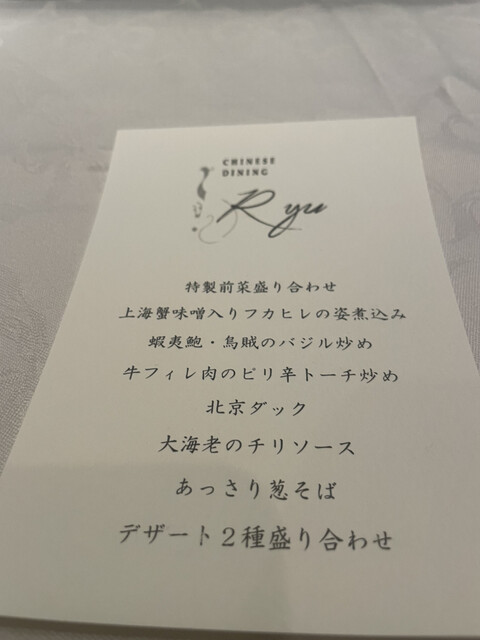 CHINESE
DINING
Ryu
特製前菜盛り合わせ
上海蟹味噌入りフカヒレの姿煮込み
蝦夷鮑・烏賊のバジル炒め
牛フィレ肉のピリ辛トーチ炒め
北京ダック
大海老のチリソース
あっさり葱そば
デザート２種盛り合わせ